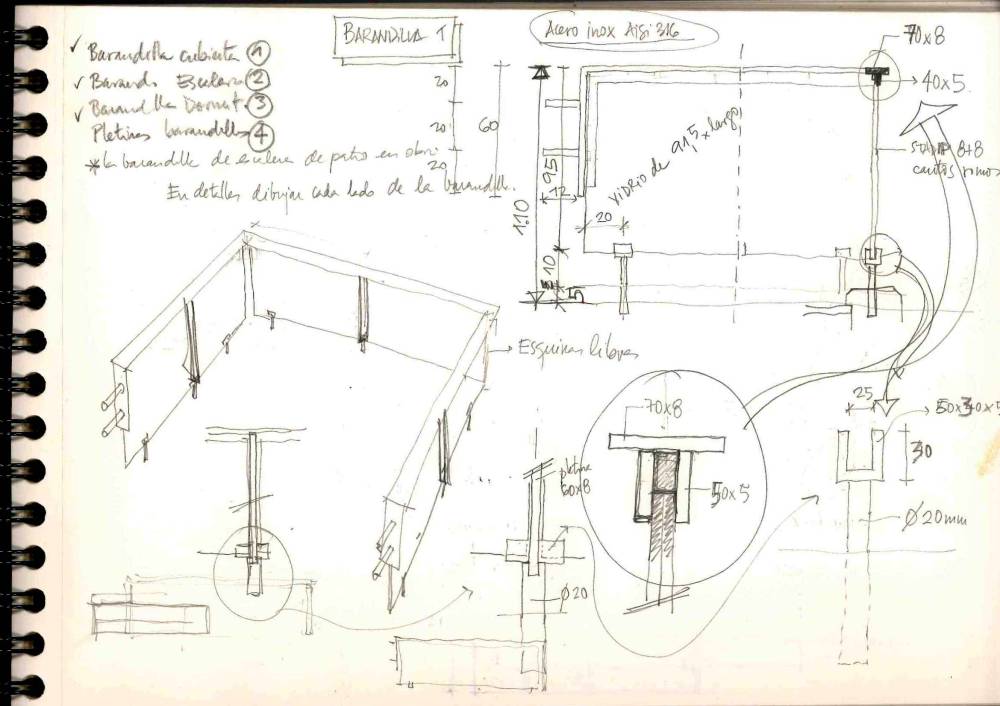 ✓ Barandilla cubierta 1
✓ Barand. Escalera 2
✓ Barandilla Dormit. 3
Pletinas barandillas 4
* la barandilla de escalera de patio en obra.
En detalles dibujar cada lado de la barandilla.
BARANDILLA 1
Acero inox Aisi 316
70x8
40x5
8+8
cantos romos
20
20
20
60
1.10
95
10
5
12
20
VIDRIO de 91,5 x largo
Esquinas libres
pletina
60x8
Ø20
70x8
50x5
25
50x30x5
30
Ø 20mm